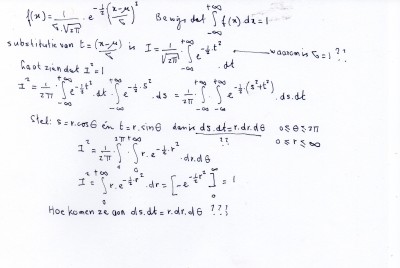 f(x) = 1/(σ.√2π) . e^(-½((x-μ)/σ)²) Bewijs dat ∫_{-∞}^{+∞} f(x) dx = 1
substitutie van t = (x-μ)/σ is I = 1/√2π ∫_{-∞}^{+∞} e^(-½t²) .dt waarom is σ = 1 ??
Laat zien dat I² = 1
I² = 1/2π . ∫_{-∞}^{+∞} e^(-½t²) . dt . ∫_{-∞}^{+∞} e^(-½.s²) . ds = 1/2π . ∫_{-∞}^{+∞} ∫_{-∞}^{+∞} e^(-½(s²+t²)) . ds.dt
Stel: s = r.cosθ én t = r.sinθ dan is ds.dt = r.dr.dθ 0 ≤ θ ≤ 2π
?? 0 ≤ r ≤ ∞
I² = 1/2π . ∫ ∫ r.e^(-½.r²) .dr.dθ
I² = ∫_{0}^{+∞} r.e^(-½r²) .dr = [-e^(-½r²)]_{0}^{∞} = 1
Hoe komen ze aan ds.dt = r.dr.dθ ???